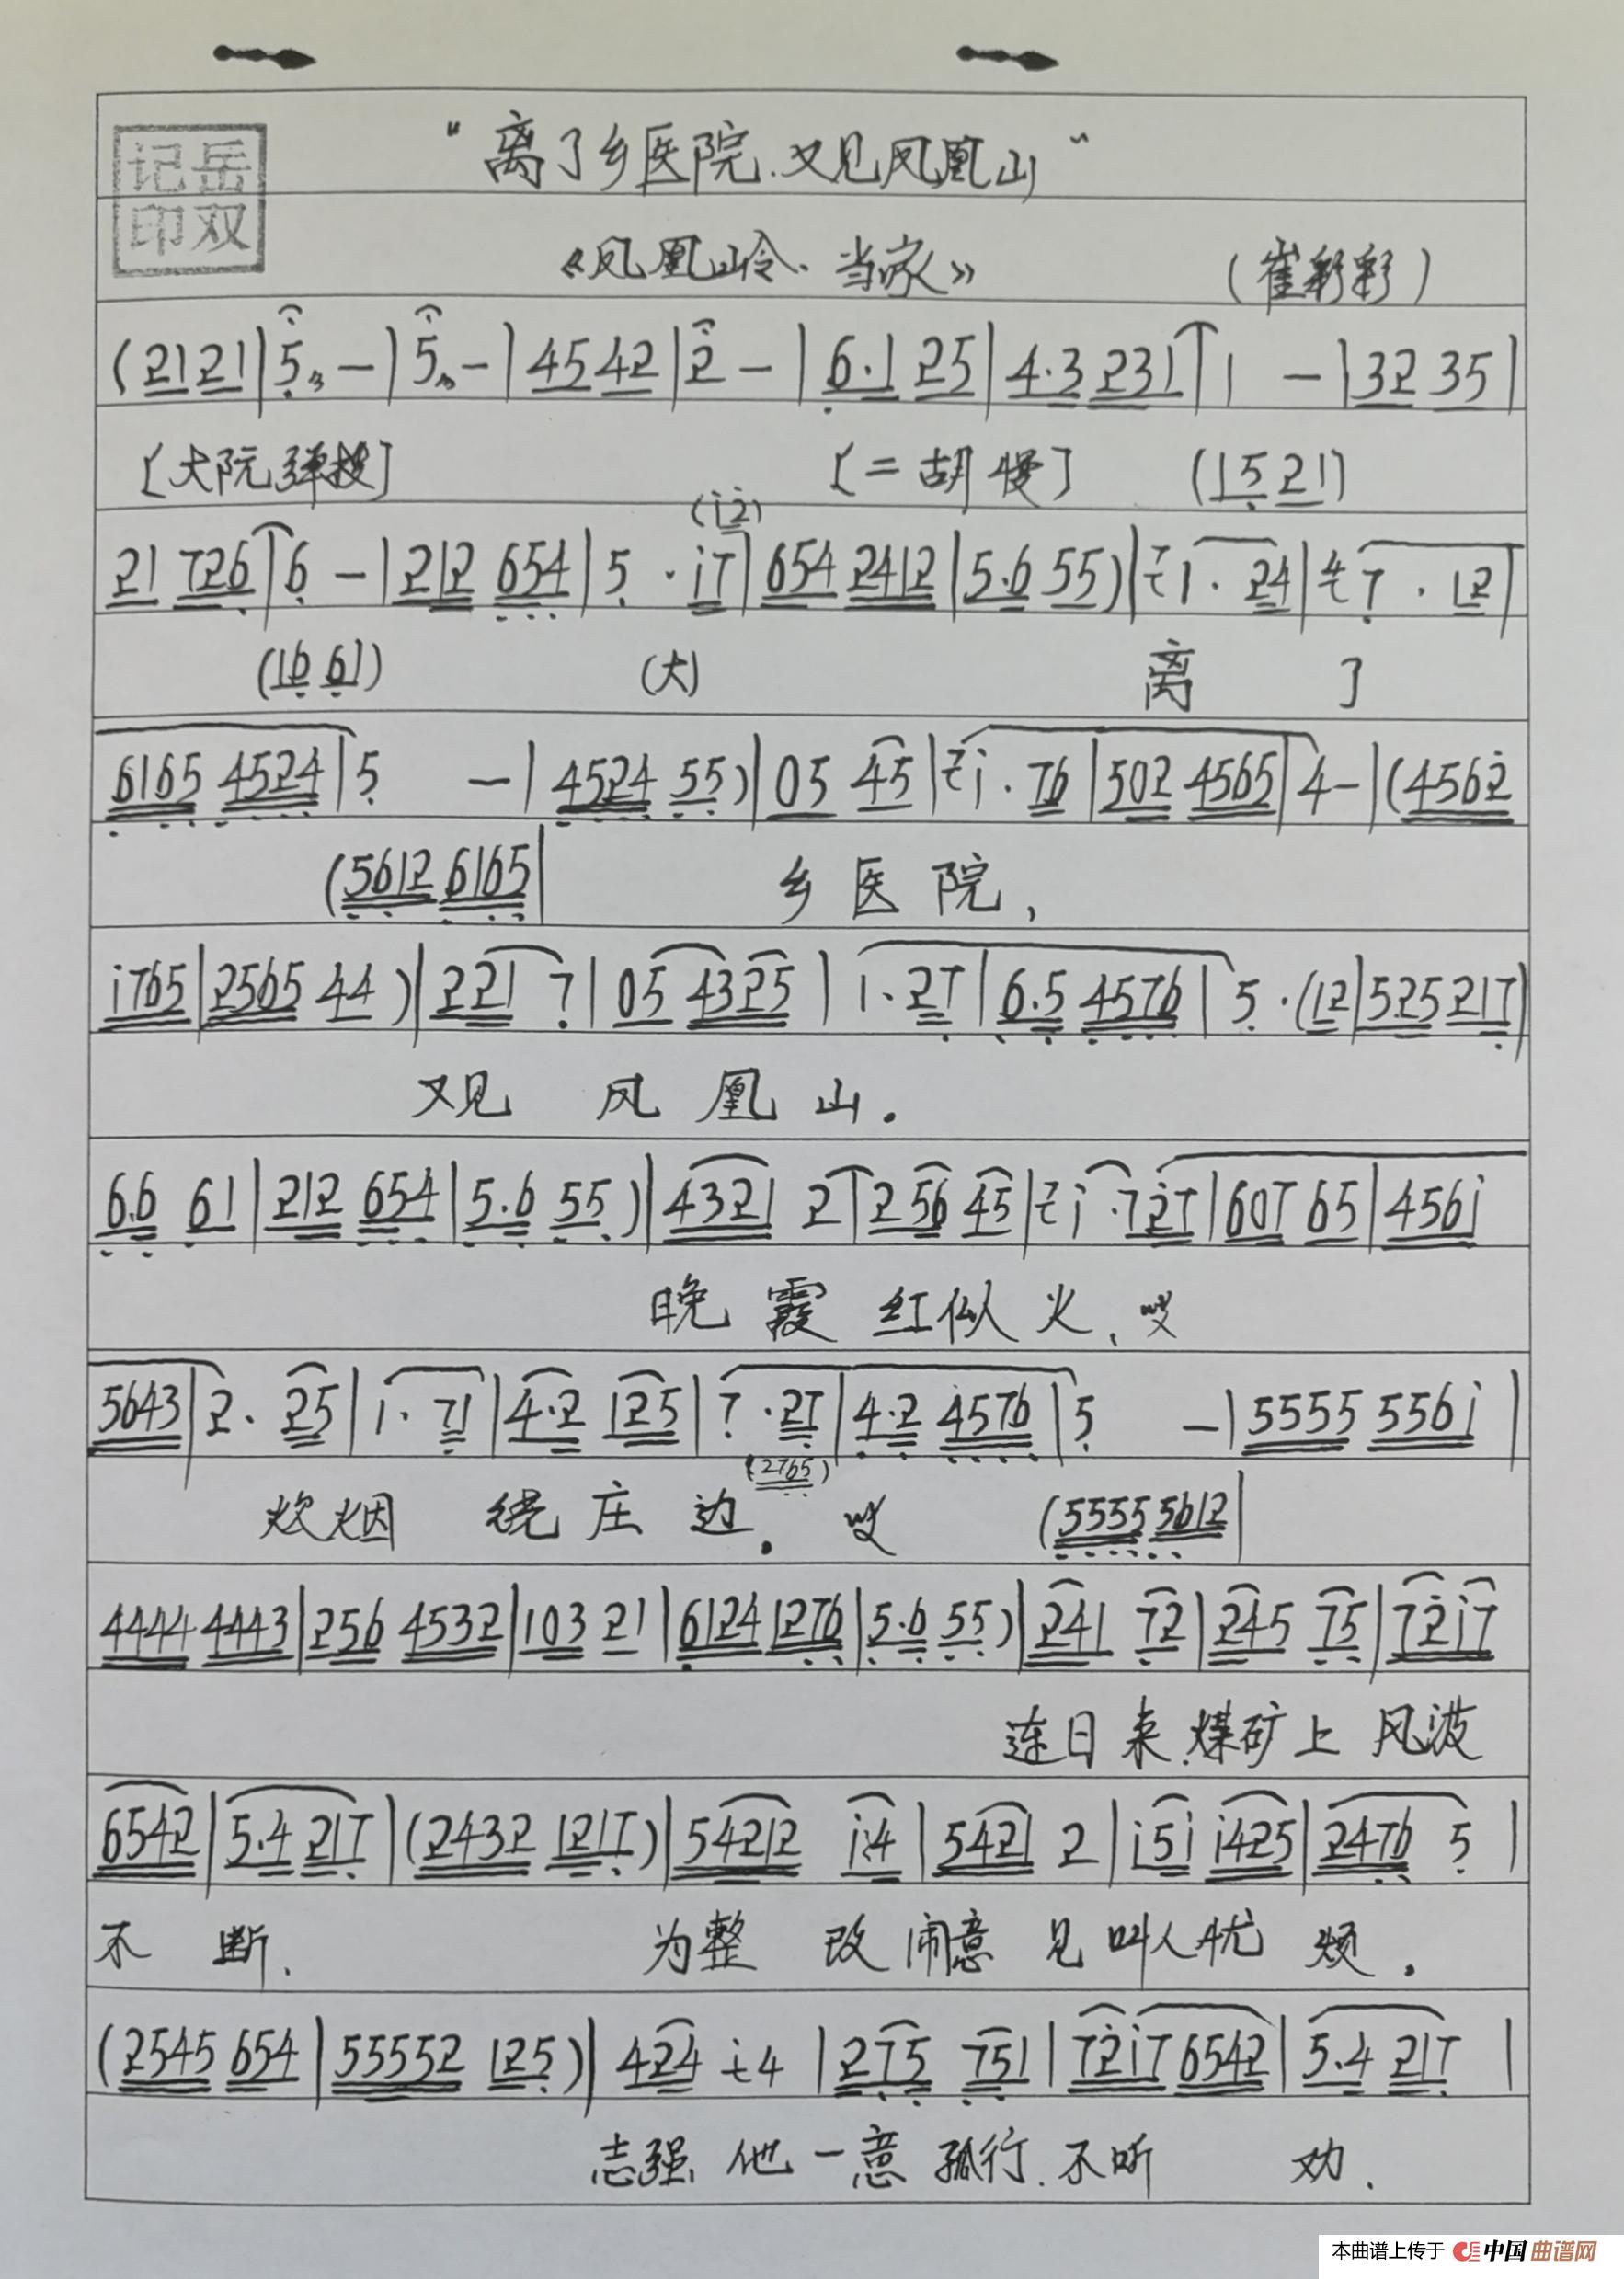 "离了乡医院.又见凤凰山"
记岳
印双
《凤凰岭.当家》 (崔彩彩)
(2121|5 -|5 -|4542|2 -|6·1 25|4·3 231|1 -|32 35|
[大阮弹拨] [二胡慢] (1521)
(i2)
21 726|6 -|212 654|5 · i7|654 2412|5·6 55)|1 · 24|7 · 12|
(16 61) (大) 离 了
6165 4524|5 -|4524 55)|05 45|i · 76|502 4565|4-|(4562
(5612 6165| 乡医院,
i765|2565 44)|221 7|05 4325|1·27|6·5 4576|5·(12|525 217|
又见 凤凰山.
6·6 61|212 654|5·6 55)|4321 2|256 45|i·727|607 65|456i
晚霞红似火、哎
5643|2·25|1·71|4·2 125|7·27|4·2 4576|5 -|5555 556i|
(2765)
炊烟 绕庄边. 哎 (5555 5612|
4444 4443|256 4532|103 21|6124 1276|5·6 55)|241 72|245 75|72i7
连日来.煤矿上风波
6542|5·4 217|(2432 1217)|54212 i4|5421 2|i5i i425|2476 5|
不断、 为整改闹意见叫人忧烦.
(2545 654|55552 125)|424 4|275 751|72i7 6542|5·4 217|
志强他一意孤行.不听 劝、
本曲谱上传于 中国曲谱网